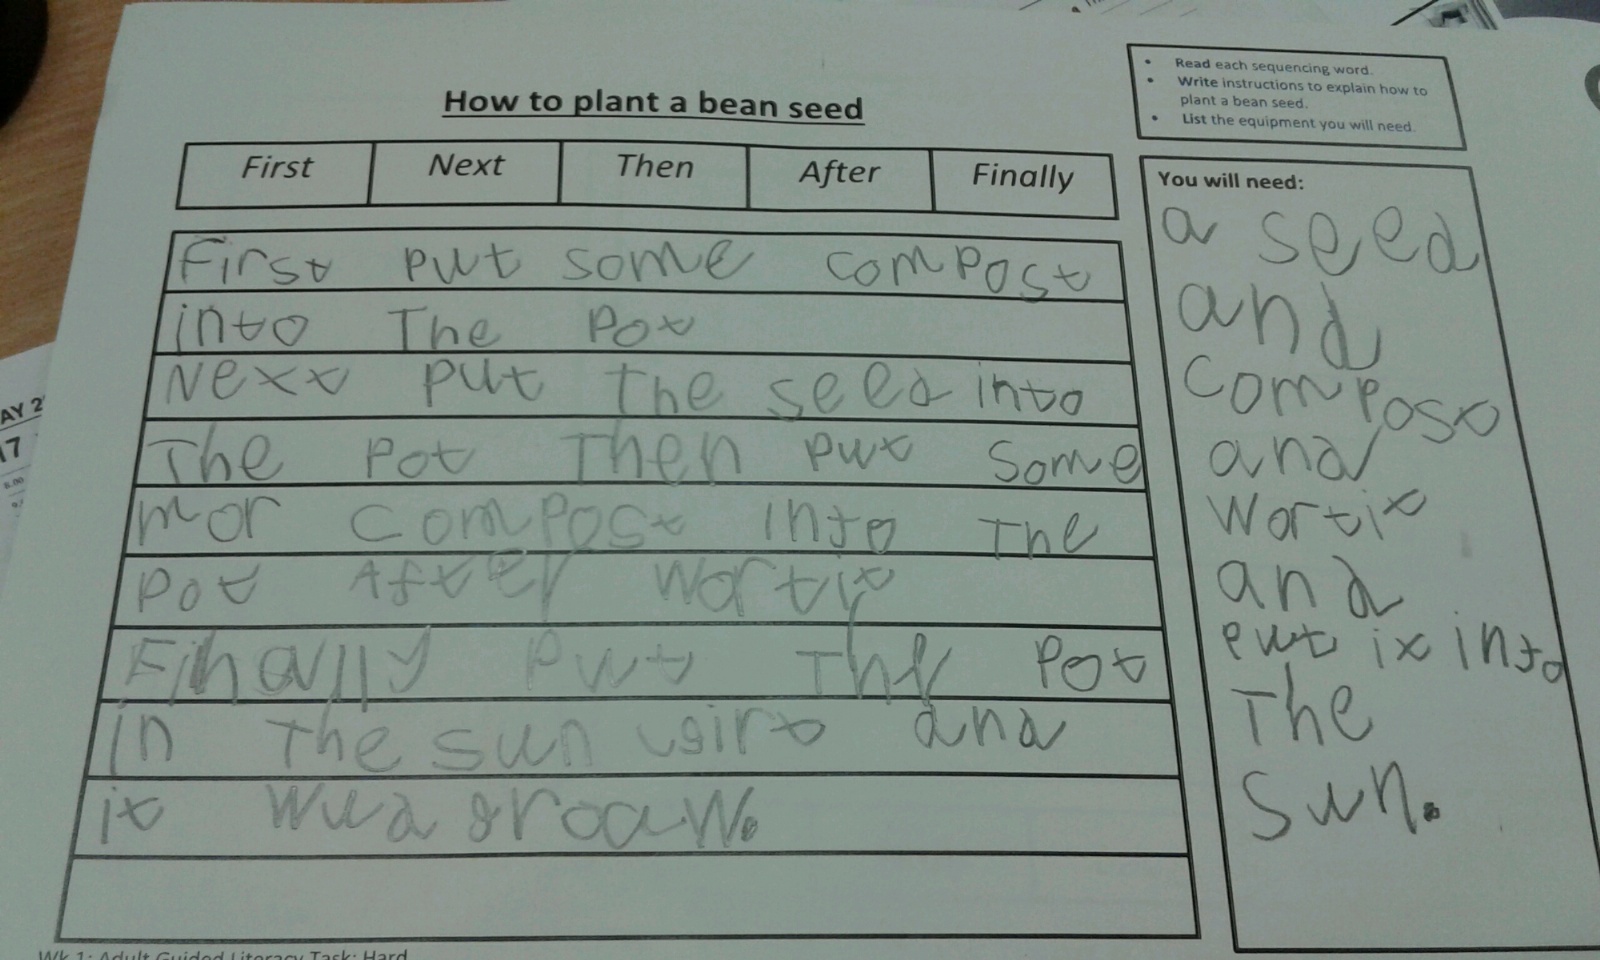 How to plant a bean seed
First Next Then After Finally
First put some compost
into The Pot
Next put the seed into
The pot Then put some
mor compost into The
pot After wortit
Finally put The pot
in The sun and
it wud groaw.
• Read each sequencing word.
• Write instructions to explain how to
plant a bean seed.
• List the equipment you will need.
You will need:
a seed
and
compost
and
wortit
and
put it into
The
sun.
AY 2
17
Wk 1: Adult Guided Literacy Task: Hard